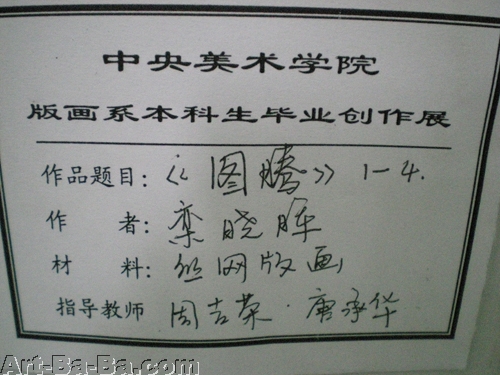 中央美术学院
版画系本科生毕业创作展
作品题目:《图腾》1-4.
作 者:栾晓晖
材 料:丝网版画
指导教师 周吉荣·唐承华
Art-Ba-Ba.com